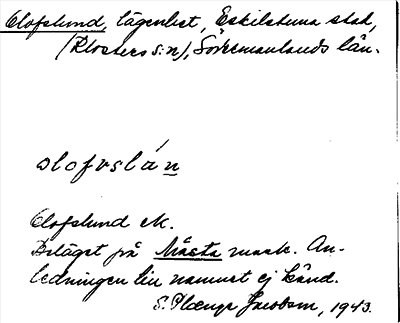 Olofslund, lägenhet, Eskilstuna stad,
(Klosters s:n), Södermanlands län.
olofslán
Olofslund M.
Beläget på Måsta mark. An-
ledningen till namnet ej känd.
S. Jacobson, 1943.